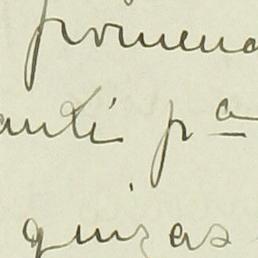 promena
anti pª
quizas